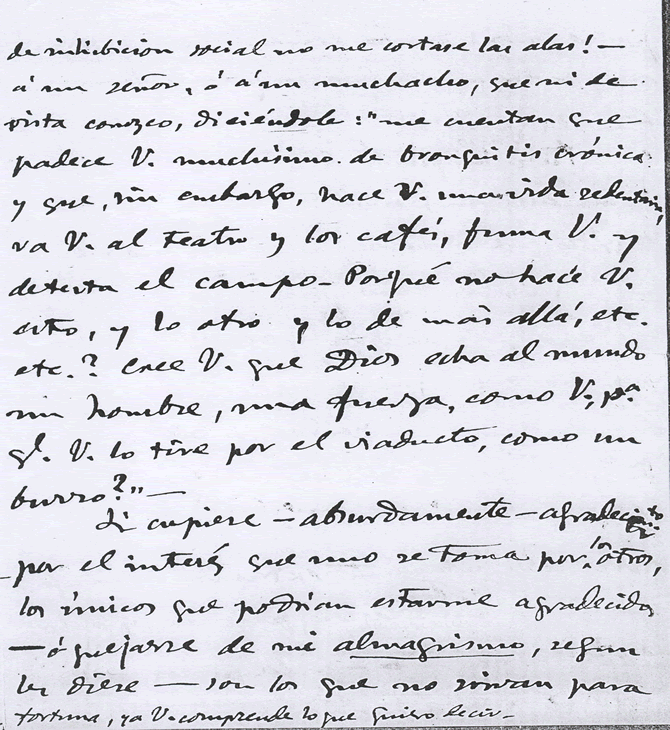 de inhibicion social no me cortase las alas! —
á un señor, ó á un muchacho, que ni de
vista conozco, diciéndole: "me cuentan que
padece V. muchisimo de bronquitis crónica
y que, sin embargo, hace V. una vida sedentaria,
va V. al teatro y los cafés, fuma V. y
detesta el campo - Porqué no hace V.
esto, y lo otro y lo de más allá, etc.
etc.? Cree V. que Dios echa al mundo
un hombre, una fuerza, como V., pª
qᵉ. V. lo tire por el viaducto, como un
burro?" —
Si cupiere — absurdamente — agradecimᵗᵒ
por el interés que uno se toma por los otros,
los únicos que podrian estarme agradecidos
— ó quejarse de mi almagrismo, segun
les diere — son los que no sirvan para
fortuna, ya V. comprende lo que quiero decir -